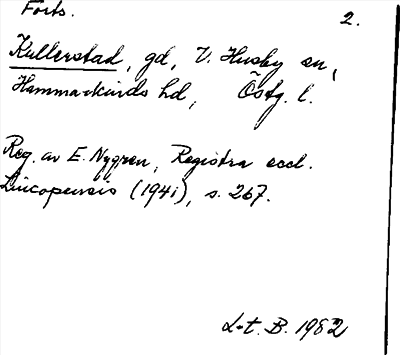 Forts. 2.
Kullerstad, gd, V. Husby sn,
Hammarkinds hd, Östg. l.
Reg. av E. Nygren, Registra eccl.
Lincopensis (1941), s. 267.
L-t. B. 1982